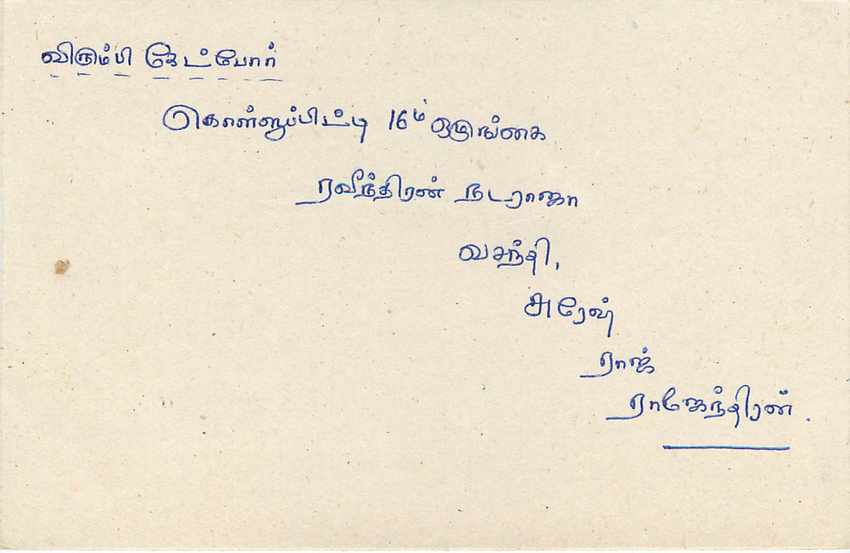 விரும்பி கேட்போர்
கொள்ளுப்பிட்டி 16ம் ஒழுங்கை
ரவீந்திரன் நடராஜா
வசந்தி,
சுரேஷ்
ராஜ்
ராஜேந்திரன்.